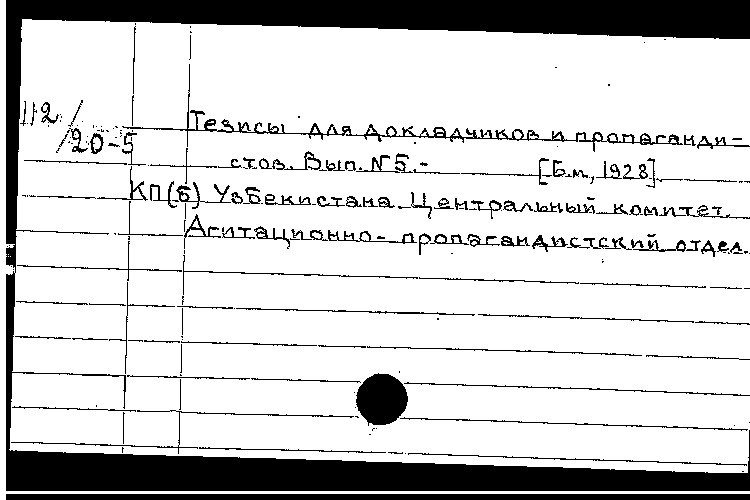 112/20-5
Тезисы для докладчиков и пропаганди-
стов. Вып. N5.- [Б.м., 1928].
КП(б) Узбекистана. Центральный комитет.
Агитационно-пропагандистский отдел.